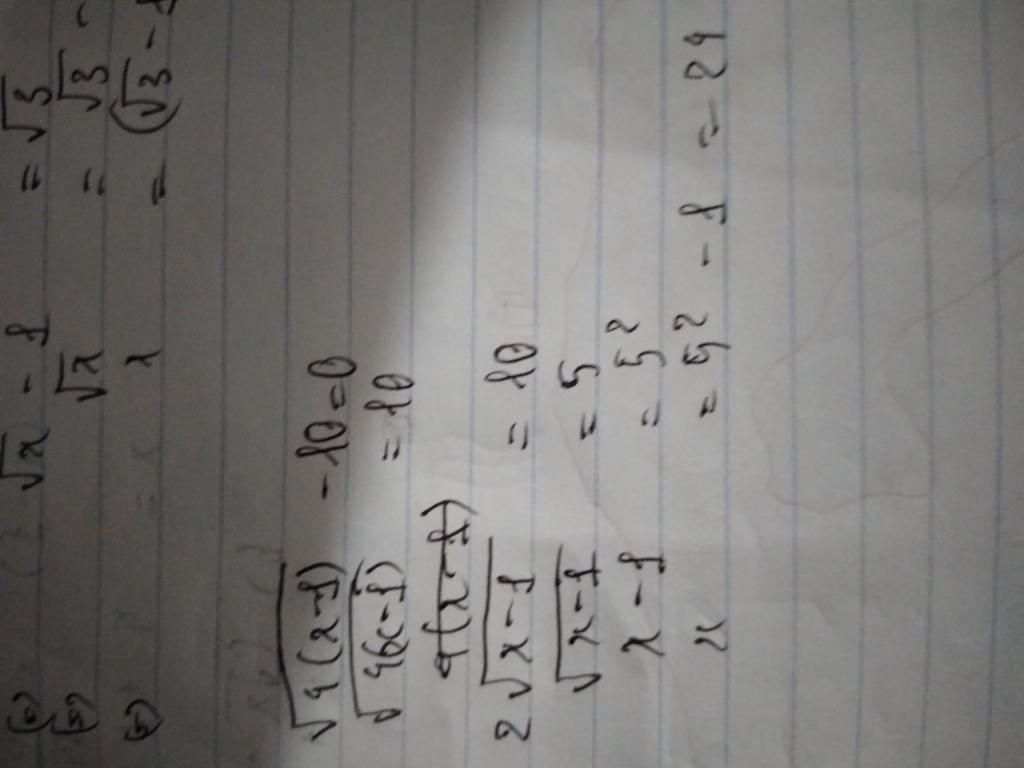 (=) √x - 1 = √3
(=) √x = √3 -
(=) x = (√3 - 1
√4(x-1) - 10 = 0
√4(x-1) = 10
4(x-1)
2√x-1 = 10
√x-1 = 5
x - 1 = 5²
x = 5² - 1 = 24